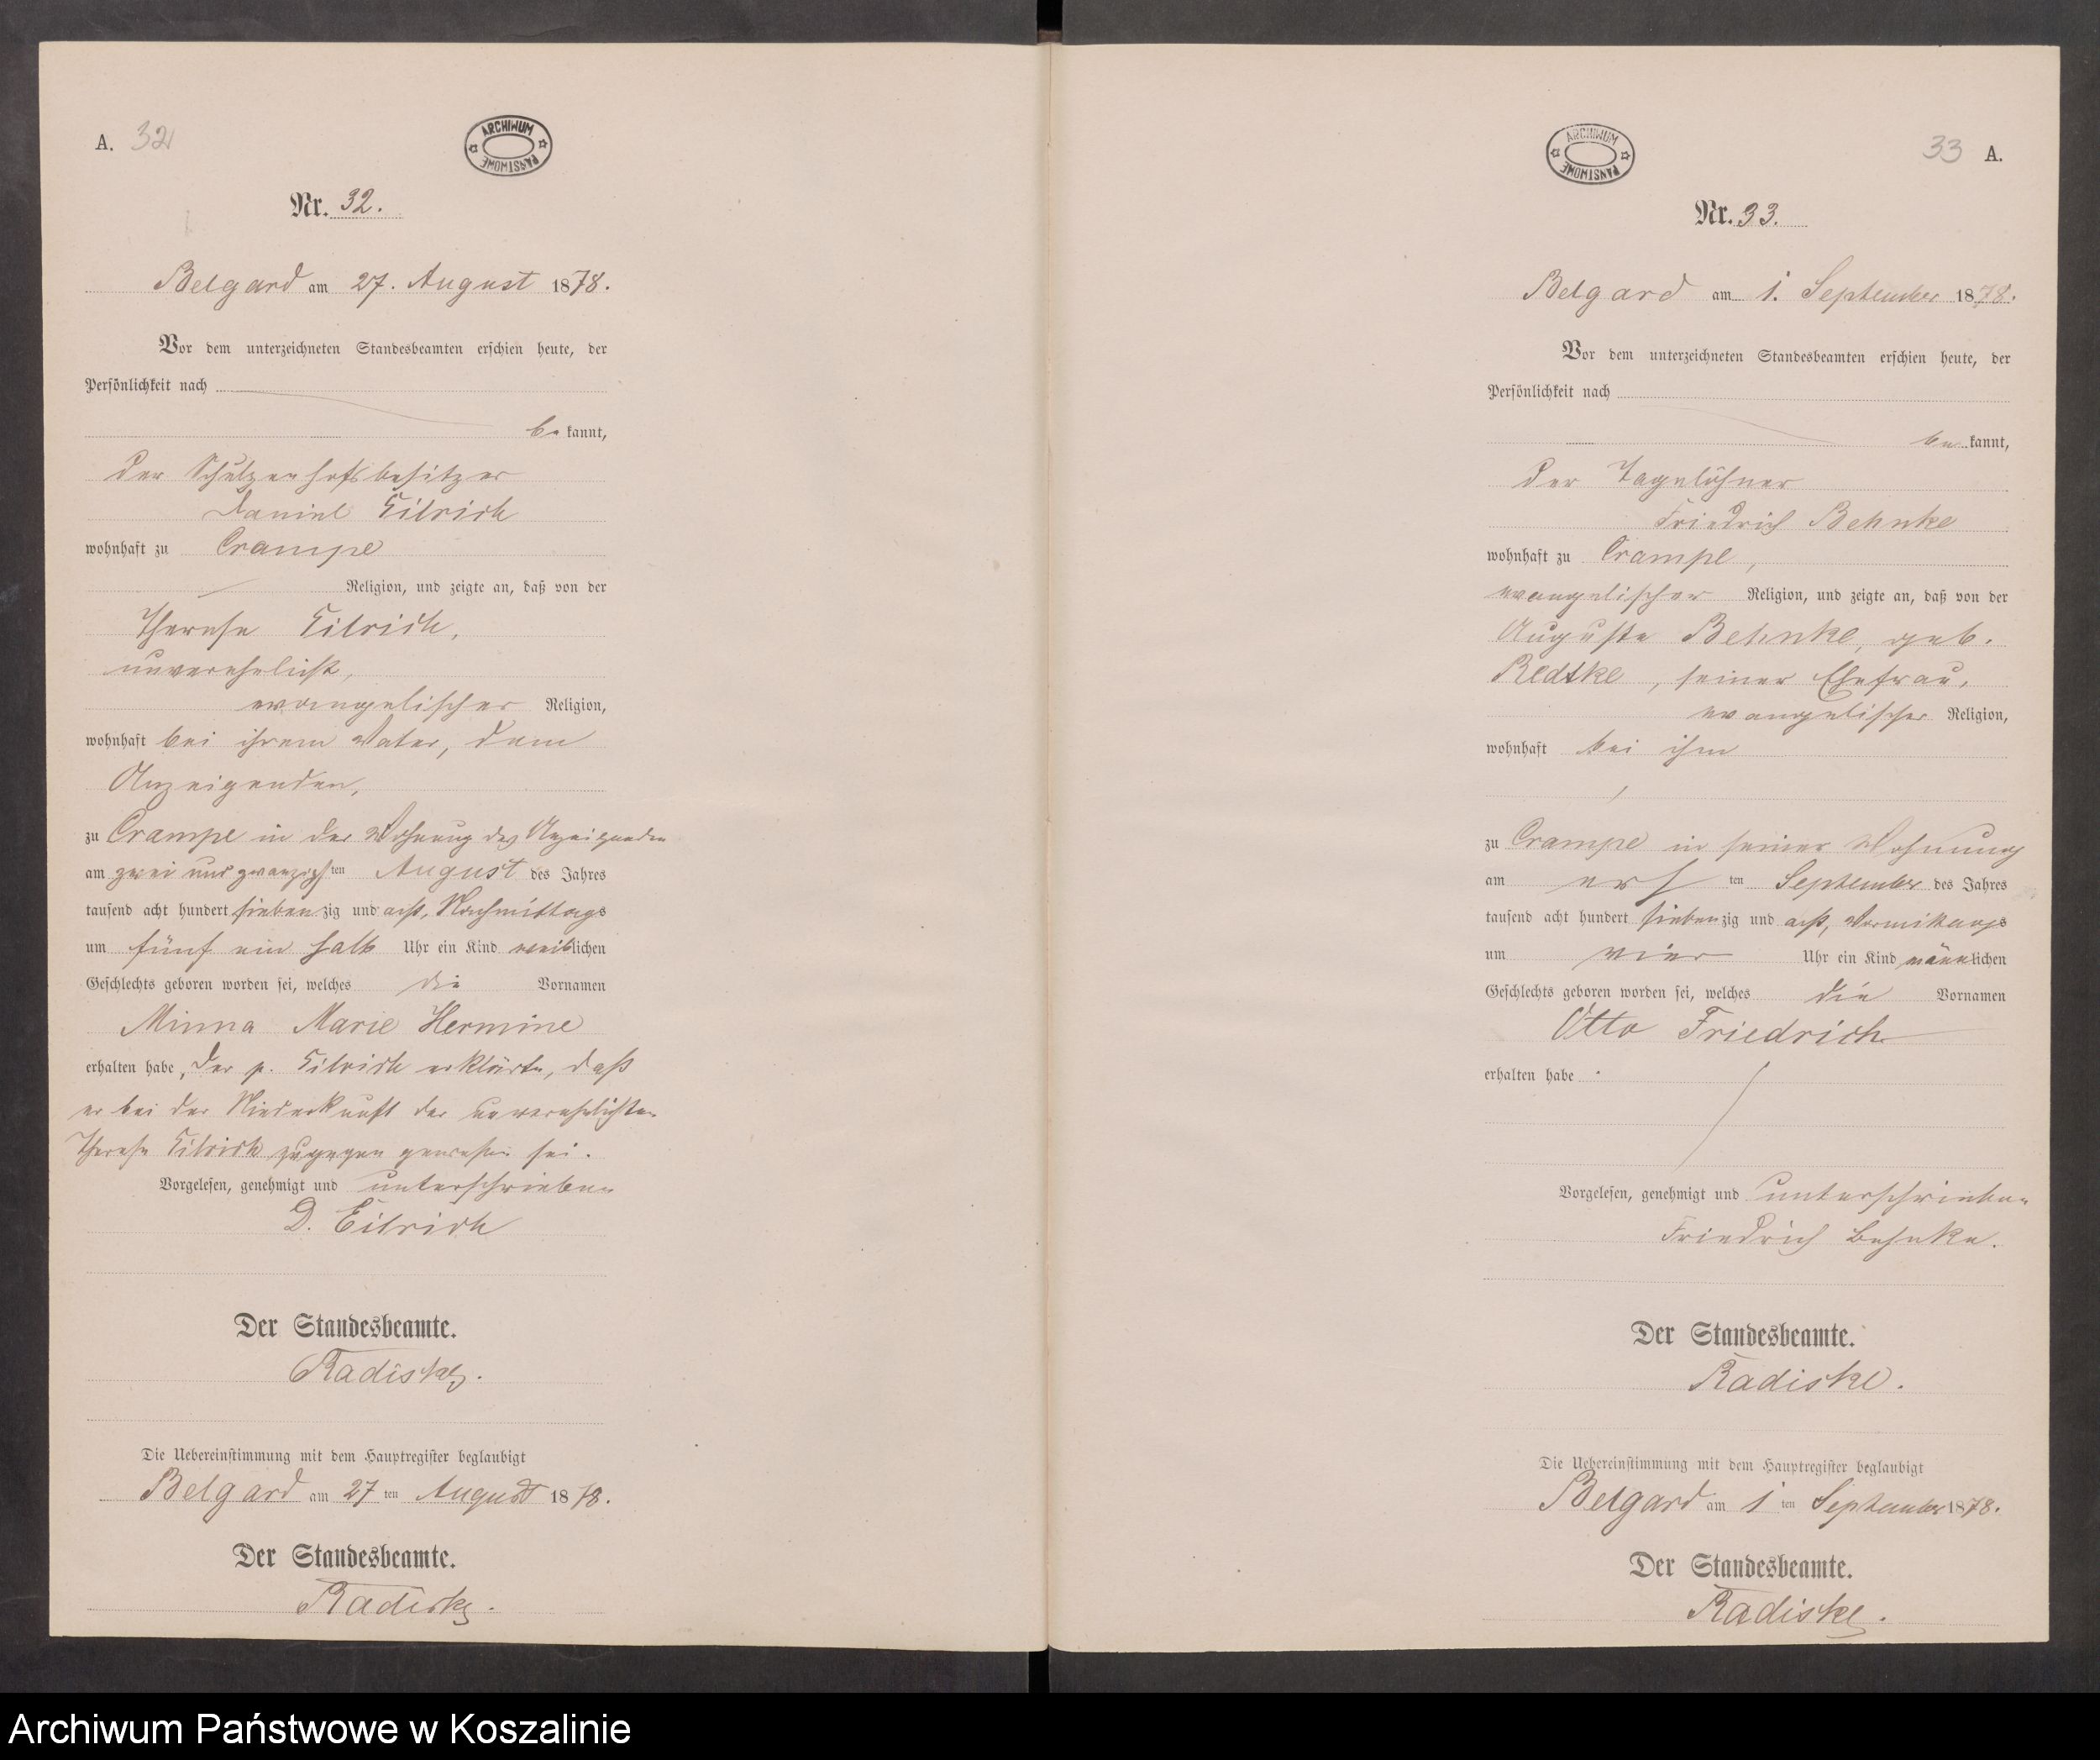 A. 32
ARCHIWUM PAŃSTWOWE
Nr. 32.
Belgard am 27. August 1878.
Vor dem unterzeichneten Standesbeamten erschien heute, der
Persönlichkeit nach
bekannt,
der Schulzenhofsbesitzer
Daniel Eilrich
wohnhaft zu Crampe
Religion, und zeigte an, daß von der
Therese Eilrich,
unverehelicht,
evangelischer Religion,
wohnhaft bei ihrem Vater, dem
Anzeigenden,
zu Crampe in der Wohnung des Anzeigenden
am zwei und zwanzigsten August des Jahres
tausend acht hundert siebenzig und acht, Nachmittags
um fünf ein halb Uhr ein Kind weiblichen
Geschlechts geboren worden sei, welches die Vornamen
Minna Marie Hermine
erhalten habe, der p. Eilrich erklärte, daß
er bei der Niederkunft der unverehelichten
Therese Eilrich zugegen gewesen sei.
Vorgelesen, genehmigt und unterschrieben
D. Eilrich
Der Standesbeamte.
Radiske.
Die Uebereinstimmung mit dem Hauptregister beglaubigt
Belgard am 27 ten August 1878.
Der Standesbeamte.
Radiske.
33 A.
ARCHIWUM PAŃSTWOWE
Nr. 33.
Belgard am 1. September 1878.
Vor dem unterzeichneten Standesbeamten erschien heute, der
Persönlichkeit nach
bekannt,
der Tagelöhner
Friedrich Behnke
wohnhaft zu Crampe,
evangelischer Religion, und zeigte an, daß von der
Auguste Behnke, geb.
Redtke, seiner Ehefrau,
evangelischer Religion,
wohnhaft bei ihm
zu Crampe in seiner Wohnung
am ersten September des Jahres
tausend acht hundert siebenzig und acht, Vormittags
um vier Uhr ein Kind männlichen
Geschlechts geboren worden sei, welches die Vornamen
Otto Friedrich
erhalten habe.
Vorgelesen, genehmigt und unterschrieben
Friedrich Behnke.
Der Standesbeamte.
Radiske.
Die Uebereinstimmung mit dem Hauptregister beglaubigt
Belgard am 1 ten September 1878.
Der Standesbeamte.
Radiske.
Archiwum Państwowe w Koszalinie